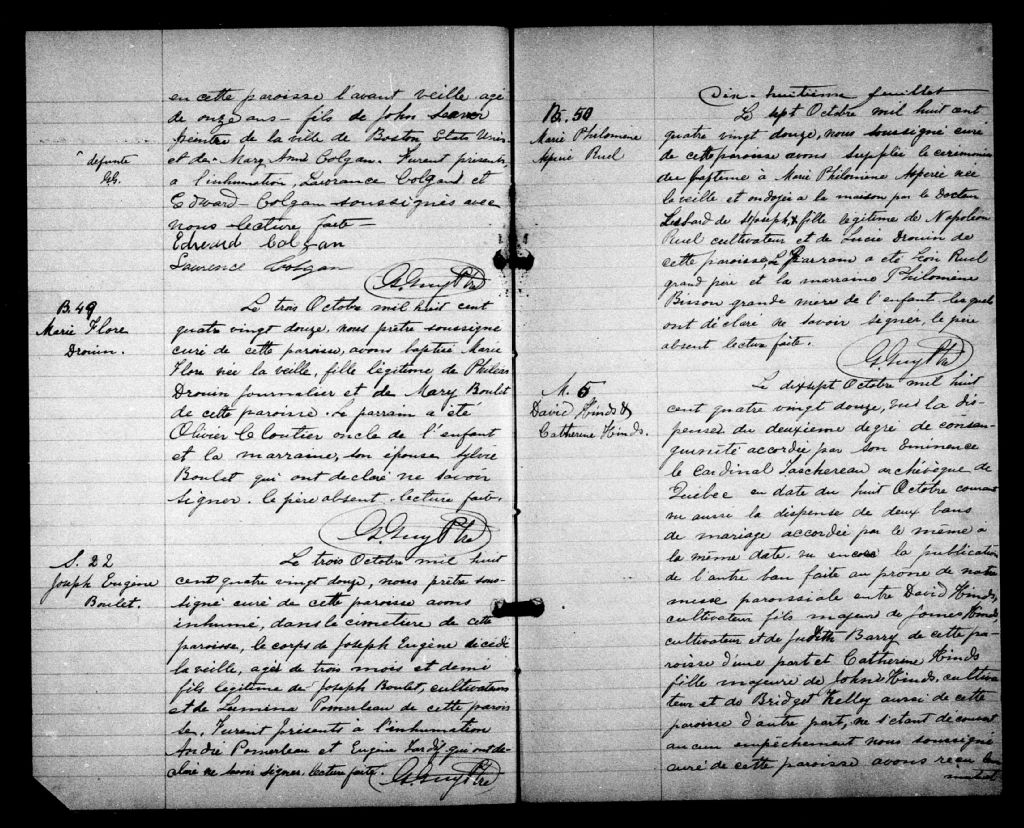 en cette paroisse l'avant veille agé
de onze ans - fils de John
peintre de la ville de Boston Etats Unis
^ défunte
G.G.
et de ^ Mary Ann Colgan. Furent présents
a l'inhumation, Lawrance Colgan et
Edward Colgan soussignés avec
nous lecture faite -
Edward Colgan
Lawrence Colgan
G. Guy Ptre
B. 49
Marie Flore
Drouin.
Le trois Octobre mil huit cent
quatre vingt douze, nous prêtre soussigné
curé de cette paroisse, avons baptisé Marie
Flore née la veille, fille légitime de Philéas
Drouin journalier et de Mary Boulet
de cette paroisse. Le parrain a été
Olivier Cloutier oncle de l'enfant
et la marraine, son épouse Sylvie
Boulet qui ont declaré ne savoir
signer. le père absent. lecture faite.
G. Guy Ptre
S. 22
Joseph Eugène
Boulet.
Le trois Octobre mil huit
cent quatre vingt douze, nous prêtre sous-
signé curé de cette paroisse avons
inhumé, dans le cimetière de cette
paroisse, le corps de Joseph Eugène décédé
la veille, agé de trois mois et demi
fils légitime de Joseph Boulet, cultivateur
et de Lumina Pomerleau de cette parois
se. Furent présents à l'inhumation
André Pomerleau et Eugène Tardif qui ont dé-
claré ne savoir signer. lecture faite. G. Guy Ptre
Dix-huitième feuillet
B. 50
Marie Philomène
Ruel
Le sept Octobre mil huit cent
quatre vingt douze, nous soussigné curé
de cette paroisse avons suppléé les cérémonies
du baptême à Marie Philomène née
la veille et ondoyée a la maison par le Docteur
de St Joseph, fille légitime de Napoléon
Ruel cultivateur et de Lucie Drouin de
cette paroisse. Le Parrain a été Ruel
grand père et la marraine Philomène
Bisson grande mère de l'enfant lesquels
ont déclaré ne savoir signer, le père
absent lecture faite.
G. Guy Ptre
M. 5
David Hinds &
Catherine Hinds.
Le dix sept Octobre mil huit
cent quatre vingt douze, vu la dis-
pense du deuxième degré de consan-
guinité accordée par son Eminence
le Cardinal Taschereau archévêque de
Québec en date du huit Octobre courant
vu aussi la dispense de deux bans
de mariage accordée par le même a
la même date. vu encore la publication
de l'autre ban faite au prône de notre
messe paroissiale entre David Hinds,
cultivateur fils majeur de James Hinds,
cultivateur et de Judith Barry de cette pa-
roisse d'une part et Catherine Hinds
fille majeure de John Hinds, cultiva-
teur et de Bridget Kelly aussi de cette
paroisse d'autre part, ne s'étant découvert
aucun empêchement nous soussigné
curé de cette paroisse avons reçu leur
mutuel